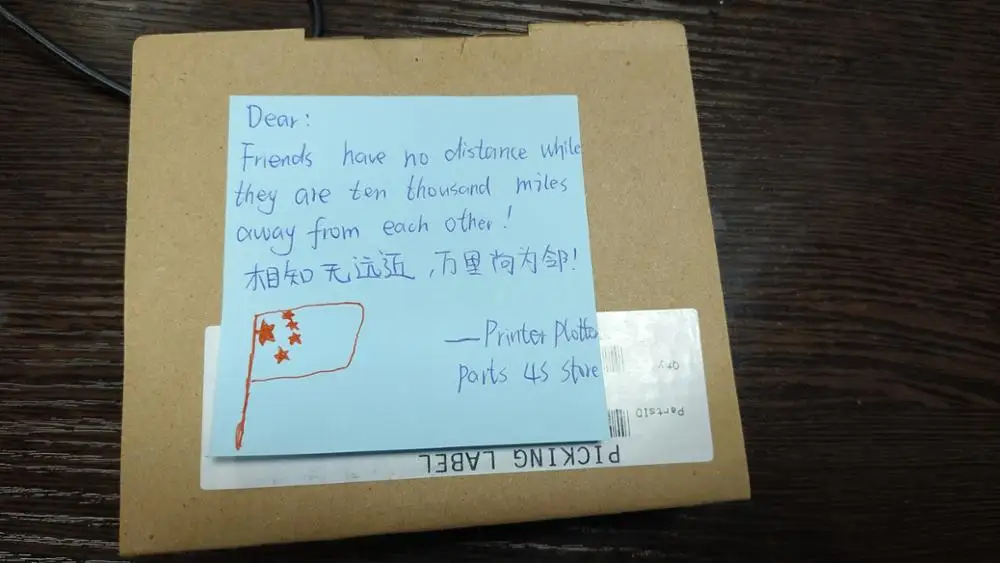 Dear:
Friends have no distance while
they are ten thousand miles
away from each other!
相知无远近,万里尚为邻!
—Printer Plotter
parts 4S store
Qty
PartsID
PICKING LABEL